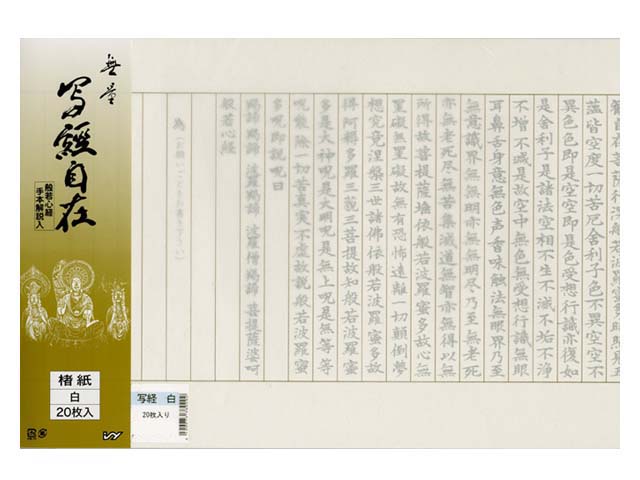 無量
写経自在
般若心経
手本解説入
楮紙
白
20枚入
写経 白
20枚入り
観自在菩薩行深般若波羅蜜多時照見五
蘊皆空度一切苦厄舎利子色不異空空不
異色色即是空空即是色受想行識亦復如
是舎利子是諸法空相不生不滅不垢不浄
不増不減是故空中無色無受想行識無眼
耳鼻舌身意無色声香味触法無眼界乃至
無意識界無無明亦無無明尽乃至無老死
亦無老死尽無苦集滅道無智亦無得以無
所得故菩提薩埵依般若波羅蜜多故心無
罣礙無罣礙故無有恐怖遠離一切顛倒夢
想究竟涅槃三世諸佛依般若波羅蜜多故
得阿耨多羅三藐三菩提故知般若波羅蜜
多是大神呪是大明呪是無上呪是無等等
呪能除一切苦真実不虚故説般若波羅蜜
多呪即説呪曰
羯諦羯諦 波羅羯諦 波羅僧羯諦 菩提薩婆呵
般若心経
為（お願いごとをお書き下さい）